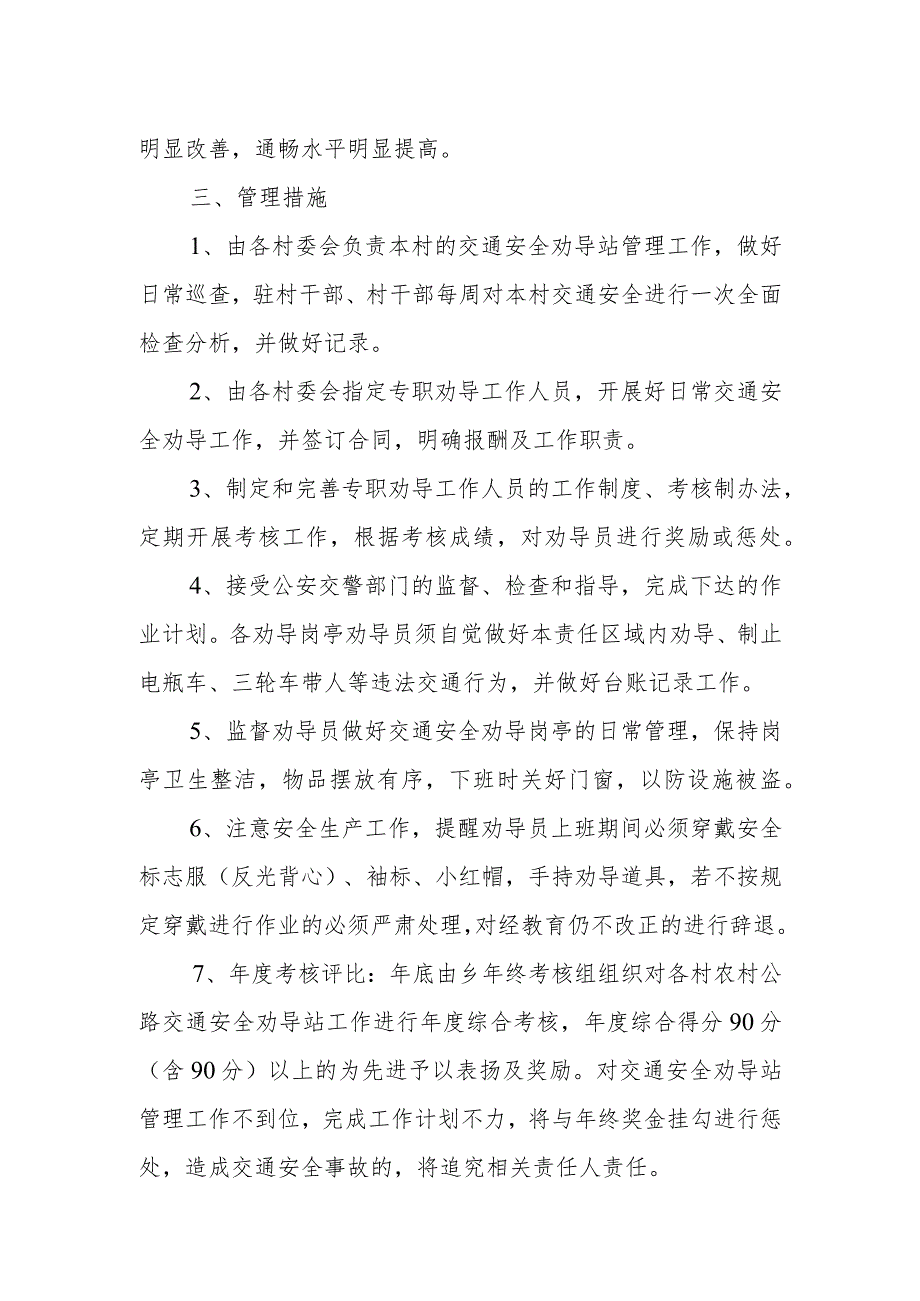 明显改善，通畅水平明显提高。
三、管理措施
1、由各村委会负责本村的交通安全劝导站管理工作，做好
日常巡查，驻村干部、村干部每周对本村交通安全进行一次全面
检查分析，并做好记录。
2、由各村委会指定专职劝导工作人员，开展好日常交通安
全劝导工作，并签订合同，明确报酬及工作职责。
3、制定和完善专职劝导工作人员的工作制度、考核制办法，
定期开展考核工作，根据考核成绩，对劝导员进行奖励或惩处。
4、接受公安交警部门的监督、检查和指导，完成下达的作
业计划。各劝导岗亭劝导员须自觉做好本责任区域内劝导、制止
电瓶车、三轮车带人等违法交通行为，并做好台账记录工作。
5、监督劝导员做好交通安全劝导岗亭的日常管理，保持岗
亭卫生整洁，物品摆放有序，下班时关好门窗，以防设施被盗。
6、注意安全生产工作，提醒劝导员上班期间必须穿戴安全
标志服（反光背心）、袖标、小红帽，手持劝导道具，若不按规
定穿戴进行作业的必须严肃处理，对经教育仍不改正的进行辞退。
7、年度考核评比：年底由乡年终考核组组织对各村农村公
路交通安全劝导站工作进行年度综合考核，年度综合得分 90 分
（含 90 分）以上的为先进予以表扬及奖励。对交通安全劝导站
管理工作不到位，完成工作计划不力，将与年终奖金挂勾进行惩
处，造成交通安全事故的，将追究相关责任人责任。